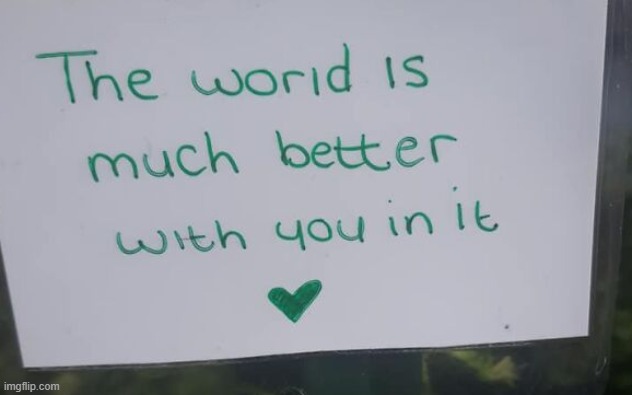 The world is
much better
with you in it
imgflip.com